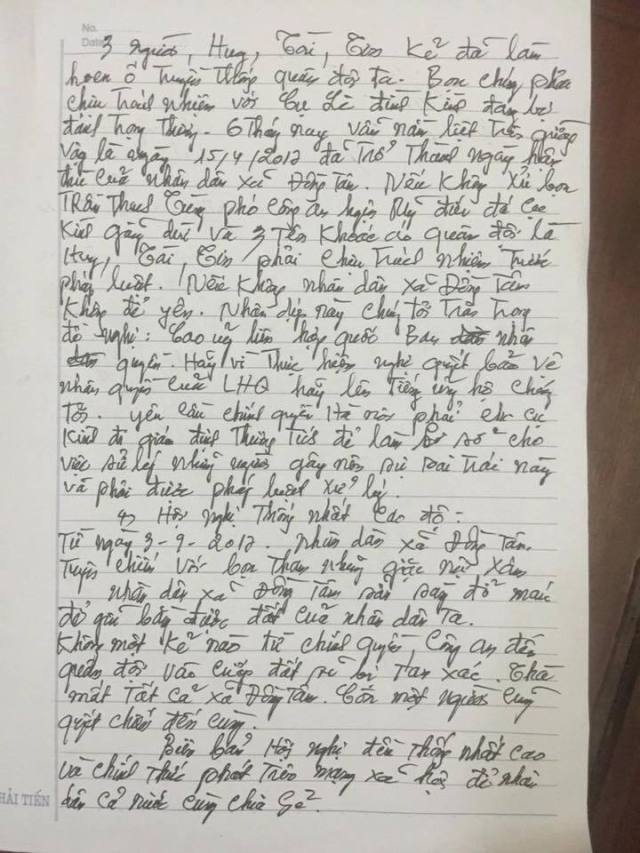 No.
Date
3 người, Huy, Cài, Cún Kẻ đã làm
hoen ố Truyền Thống quân đội ta. Bọn chúng phải
chịu Trách Nhiệm với Cụ Lê đình Kình đang bị
đánh Trọng Thương. 6 Tháng nay vẫn nằm liệt Trên giường
Vậy là ngày 15/4/2017 đã Trở Thành ngày hận
thù của nhân dân xã Đồng Tâm. Nếu Không Xử bọn
Trần Thanh Tùng phó Công an huyện Mỹ đức đá Cụ
Kình gãy đùi và 3 Tên Khoác áo quân đội là
Huy, Cài, phải chịu Trách nhiệm Trước
pháp luật. Nếu Không nhân dân xã Đồng Tâm
Không để yên. Nhân dịp này chúng tôi Trân Trọng
đề nghị: Cao ủy liên hợp quốc Ban nhân
quyền. Hãy vì Thực hiện nghị quyết bảo vệ
nhân quyền của LHQ hãy lên Tiếng ủng hộ chúng
Tôi. yêu cầu chính quyền Hà nội phải cho cụ
Kình đi giám định Thương Tích để làm cơ sở cho
việc sử lý những người gây nên sự sai Trái này
và phải được pháp luật xử lý.
Hội nghị Thống nhất Cao độ:
Từ ngày 3-9-2017. Nhân dân xã Đồng Tâm.
Tuyên chiến với bọn Tham nhũng giặc nội xâm
nhân dân xã Đồng Tâm sẵn sàng đổ máu
để giữ bằng được đất của nhân dân Ta.
Không một Kẻ nào từ chính quyền, Công an đến
quân đội vào cướp đất sẽ bị Tan xác. Thà
mất Tất cả xã Đồng Tâm. Còn một người cũng
quyết chiến đến cùng.
Biên bản Hội nghị đều Thống nhất cao
và chính Thức phát Trên mạng xã hội để nhân
dân cả nước cùng chia sẻ.
HẢI TIẾN